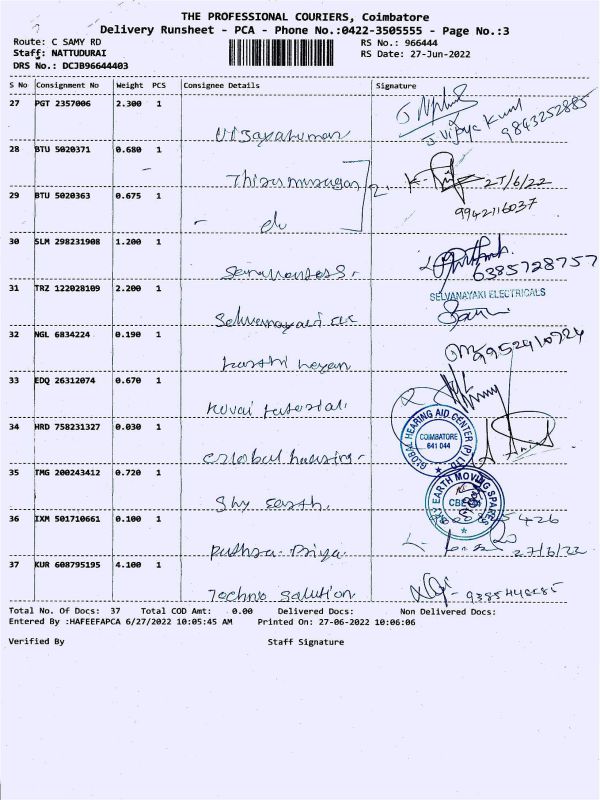 THE PROFESSIONAL COURIERS, Coimbatore
Delivery Runsheet - PCA - Phone No.:0422-3505555 - Page No.:3
Route: C SAMY RD
RS No.: 966444
Staff: NATTUDURAI
RS Date: 27-Jun-2022
DRS No.: DCJB96644403
S No Consignment No Weight PCS Consignee Details Signature
27 PGT 2357006 2.300 1
Vijayakumar
J. Vijaya Kumar
9843252885
28 BTU 5020371 0.680 1
Thirumurugan
27/6/22
29 BTU 5020363 0.675 1
9942116037
do
30 SLM 298231908 1.200 1
6385728757
31 TRZ 122028109 2.200 1
SELVANAYAKI ELECTRICALS
Selvanayaki
32 NGL 6834224 0.190 1
9952910724
33 EDQ 26312074 0.670 1
Kovai
34 HRD 758231327 0.030 1
GLOBAL HEARING AID CENTER (P) LTD
COIMBATORE
641 044
Global hearing
35 TMG 200243412 0.720 1
SKY EARTH MOVING SPARES
Sky earth
36 IXM 501710661 0.100 1
Priya
27/6/22
37 KUR 608795195 4.100 1
Techno Solution
Total No. Of Docs: 37 Total COD Amt: 0.00 Delivered Docs: Non Delivered Docs:
Entered By :HAFEEFAPCA 6/27/2022 10:05:45 AM Printed On: 27-06-2022 10:06:06
Verified By Staff Signature